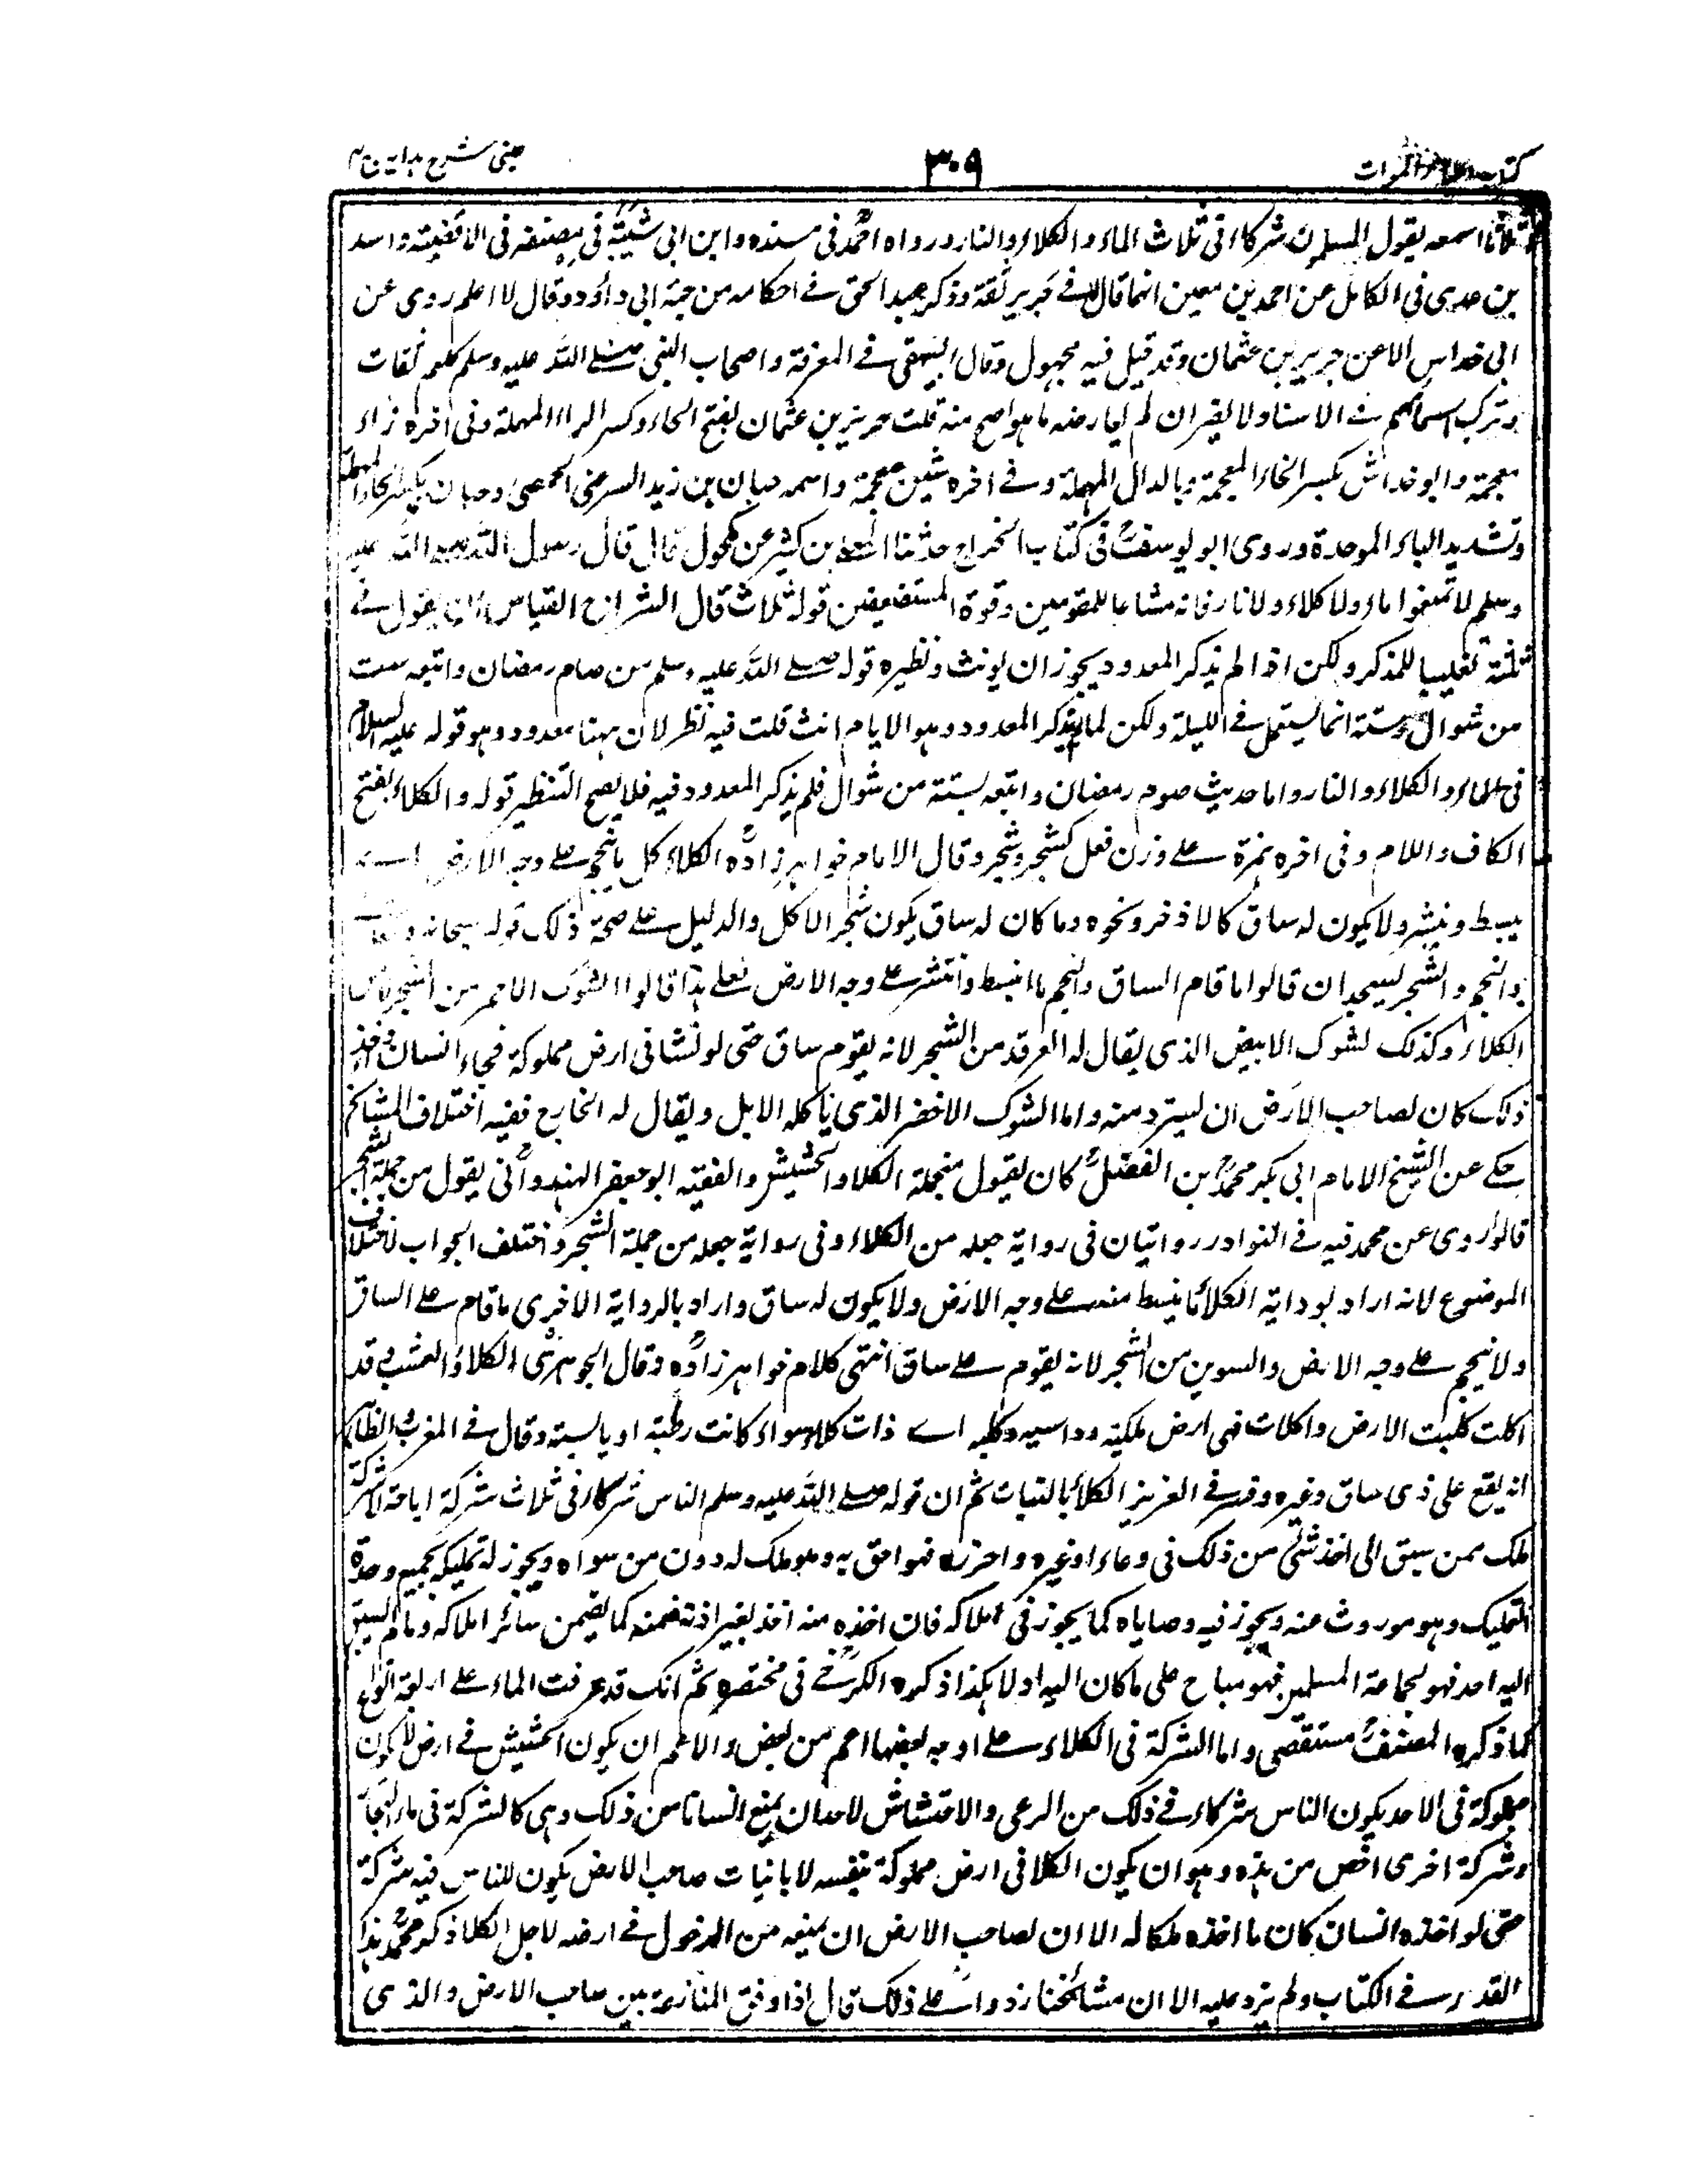 كتاب احياء الموات
٣٠٩
عينى شرح هداية ج ٤
ثلاثا اسمعه يقول المسلمون شركاء فى ثلاث الماء والكلاء والنار ورواه احمدؒ فى مسنده وابن ابى شيبةؒ فى مصنفه فى الاقضية واسند
بن عدى فى الكامل عن احمد بن معين انهما قالا فے حريز ثقة وذكره عبد الحق فے احكامه من جهة ابى داؤد وقال لا اعلم روى عن
ابى خداس الا عن حريز بن عثمان وقد قيل فيه مجهول وقال البيهقى فے المعرفة واصحاب النبى صلے الله عليه وسلم كلهم ثقات
وترك اسمائهم فے الاسناد لا يضر ان لم يعارضه ما هو اصح منه قلت حريز بن عثمان بفتح الحاء وكسر الراء المهملة وفى اخره زاء
معجمة وابو خداش بكسر الخاء المعجمة وبالدال المهملة وفے اخره شين معجمة واسمه حبان بن زيد الشرعبى الحمصى وحبان بكسر الحاء المهملة
وتشديد الباء الموحدة وروى ابو يوسفؒ فى كتاب الخراج حدثنا العلا بن كثير عن مكحول قال قال رسول الله صلے الله عليه
وسلم لا تمنعوا ماء ولا كلاء ولا نارا فانه متاعا للمقوين وقوة المستضعفين قوله ثلاث قال الشراح القياس ان يقول فے
ثلثة تغليبا للمذكر ولكن اذا لم يذكر المعدود يجوز ان يونث ونظيره قوله صلے الله عليه وسلم من صام رمضان واتبعه ست
من شوال وستة انما يستعمل فے الليلة ولكن لما لم يذكر المعدود وهو الايام انث قلت فيه نظر لان ههنا معدود وهو قوله عليه السلام
فى الماء والكلاء والنار واما حديث صوم رمضان واتبعه بستة من شوال فلم يذكر المعدود فيه فلا يصح التنظير قوله والكلاء بفتح
الكاف واللام وفى اخره همزة علے وزن فعل كشجر وشجر وقال الامام خواهر زادهؒ الكلاء كل ما ينجم علے وجه الارض اے
يبسط وينشر ولا يكون له ساق كالاذخر ونحوه وما كان له ساق يكون شجرا لا كل والدليل علے صحة ذلك قوله سبحانه و
والنجم والشجر يسجدان قالوا ما قام الساق والنجم ما انبسط وانتشر علے وجه الارض فعلے هذا قالوا الشوك الاحمر من الشجر لا من
الكلاء وكذلك الشوك الابيض الذى يقال له الغرقد من الشجر لانه يقوم ساق حتى لو نشا فى ارض مملوكة فجاء انسان واخذ
ذلك كان لصاحب الارض ان يسترد منه واما الشوك الاخضر الذى ياكله الابل ويقال له الخارج ففيه اختلاف المشائخ
حكے عن الشيخ الامام ابى بكر محمدؒ بن الفضلؒ كان يقول من جملة الكلا والحشيش والفقيه ابو جعفر الهندوانىؒ يقول من جملة الشجر
قالوا روى عن محمد فيه فے النوادر روايتان فى رواية جعله من الكلاء وفى رواية جعله من جملة الشجر واختلف الجواب لاختلاف
الموضوع لانه اراد برواية الكلاء ما ينبسط منه علے وجه الارض ولا يكون له ساق واراد بالرواية الاخرى ما قام علے الساق
ولا ينجم علے وجه الارض والسوس من الشجر لانه يقوم علے ساق انتهى كلام خواهر زادهؒ وقال الجوهرىؒ الكلاء العشب وقد
اكلت كلبت الارض واكلات فهى ارض مكلئة وداسيه وكليه اے ذات كلاء سواء كانت رطبة او يابسة وقال فے المغرب الظاهر
انه يقع على ذى ساق وغيره وفسر فے الغريز الكلاء بالنبات ثم ان قوله صلے الله عليه وسلم الناس شركاء فى ثلاث شركة اباحة لا شركة
ملك ممن سبق الى اخذ شئ من ذلك فى وعاء او غيره واحرزه فهو احق به وهو ملك له دون من سواه ويجوز له تمليكه بجميع وجوه
التمليك وهو موروث عنه ويجوز فيه وصاياه كما يجوز فى املاكه فان اخذه منه اخذ بغير اذنه ضمنه كما يضمن سائر املاكه وما لم يسبق
اليه احد فهو لجماعة المسلمين فهو مباح على ما كان اليه اولا هكذا ذكره الكرخےؒ فى مختصره ثم انك قد عرفت الماء علے اربعة انواع
كما ذكره المصنفؒ مستقصى واما الشركة فى الكلاء علے اوجه بعضها اعم من بعض والاعم ان يكون الحشيش فے ارض لا يكون
مملوكة فى الاحد يكون الناس شركاء فے ذلك من الرعى والاحتشاش لا حد ان يمنع انسانا من ذلك وهى كالشركة فى ماء البحار
وشركة اخرى اخص من هذه وهو ان يكون الكلا فى ارض مملوكة بنفسه لا بانبات صاحب الارض يكون للناس فيه شركة
حتى لو اخذه انسان كان ما اخذه ملكا له الا ان لصاحب الارض ان يمنعه من الدخول فے ارضه لاجل الكلا ذكره محمدؒ هذا
القدر فے الكتاب ولم يزد عليه الا ان مشائخنا زادوا علے ذلك قال اذا وقع المنازعة بين صاحب الارض والذى